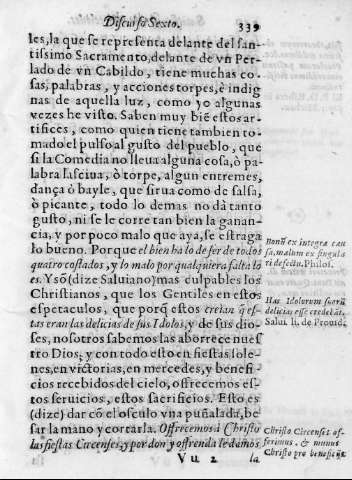 Discurso Sexto. 339
les, la que se representa delante del san-
tissimo Sacramento, delante de vn Per-
lado de vn Cabildo, tiene muchas co-
sas, palabras, y acciones torpes, è indig
nas de aquella luz, como yo algunas
vezes he visto. Saben muy biē estos ar-
tifices, como quien tiene tambien to-
mado el pulso al gusto del pueblo, que
si la Comedia no lleua alguna cosa, ò pa-
labra lasciua, ò torpe, algun entremes,
dança ò bayle, que sirua como de salsa,
ò picante, todo lo demas no dà tanto
gusto, ni se le corre tan bien la ganan-
cia, y por poco malo que aya, se estraga
lo bueno. Porque el bien ha lo de ser de todos
quatro costados, y lo malo por qualquiera falta lo
es. Y sõ (dize Saluiano) mas culpables los
Christianos, que los Gentiles en estos
espetaculos, que porq̃ estos creian q̃ es-
tas eran las delicias de sus Idolos, y de sus dio-
ses, nosotros sabemos las aborrece nues
tro Dios; y con todo esto en fiestas sole-
nes, en victorias, en mercedes, y benefi-
cios recebidos del cielo, ofrecemos es-
tos seruicios, estos sacrificios. Esto es
(dize) dar cõ el osculo vna puñalada, be
sar la mano y cortarla. Offrecemos à Christo
las fiestas Circenses, y por don y offrenda le damos
Vu 2 la
Bonū ex integra cau
sa, malum ex singula
ri defectu. Philos.
Has Idolorum suorū
delicias esse credebāt.
Salui. li. de Prouid.
Christo Circenses of-
ferimus, & munus
Christo pro beneficijs